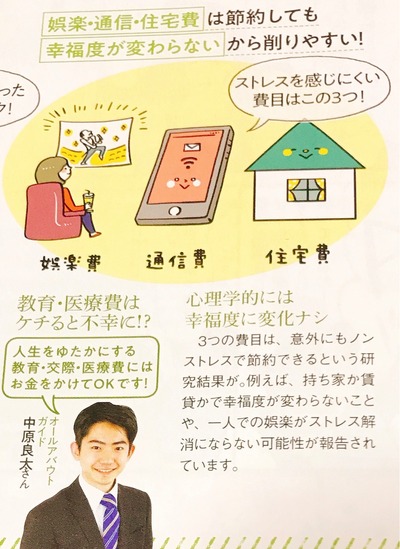 娯楽・通信・住宅費は節約しても
幸福度が変わらないから削りやすい!
った
ク!
ストレスを感じにくい
費目はこの3つ!
娯楽費
通信費
住宅費
教育・医療費は
ケチると不幸に!?
人生をゆたかにする
教育・交際・医療費には
お金をかけてOKです!
オールアバウト
ガイド
中原良太さん
心理学的には
幸福度に変化ナシ
3つの費目は、意外にもノン
ストレスで節約できるという研
究結果が。例えば、持ち家か賃
貸かで幸福度が変わらないこと
や、一人での娯楽がストレス解
消にならない可能性が報告され
ています。